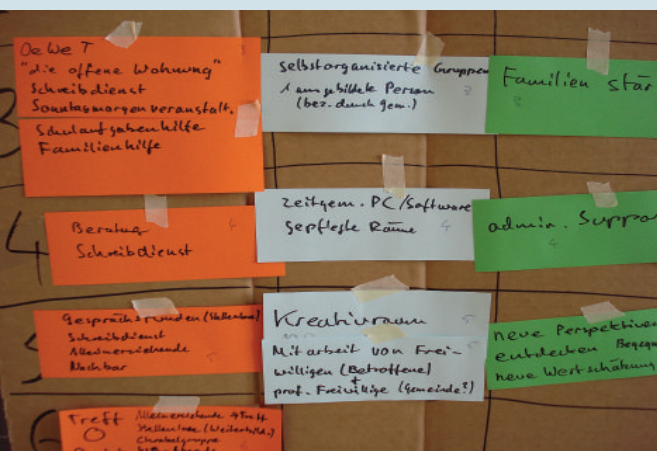 OeWe T 3
"die offene Wohnung"
Schreibdienst
Sonntagmorgen veranstalt.
Schulaufgabenhilfe
Familienhilfe
selbstorganisierte Gruppen
1 ausgebildete Person 3
(bez. durch Gem.)
Familien stär
3
4
Beratung 4
Schreibdienst
zeitgem. PC/Software
gepflegte Räume 4
admin. Suppo
4
Gesprächsrunden (Stellenlose)
Schreibdienst
Alleinerziehende
Nachbar 5
Kreativraum 5
Mitarbeit von Frei-
willigen (Betroffene)
+
prof. Freiwillige (Gemeinde?)
neue Perspektiven
entdecken Begegn
neue Wertschätzung
Treff Alleinerziehende
Stellenlose (Weiterbild.)